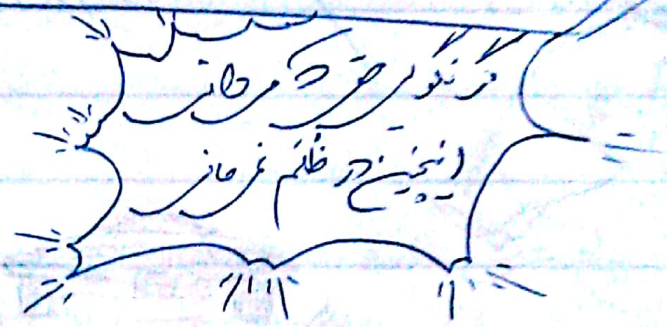 گر نگویی حق شه می دانی
اینچنین در ظلم نمی مانی